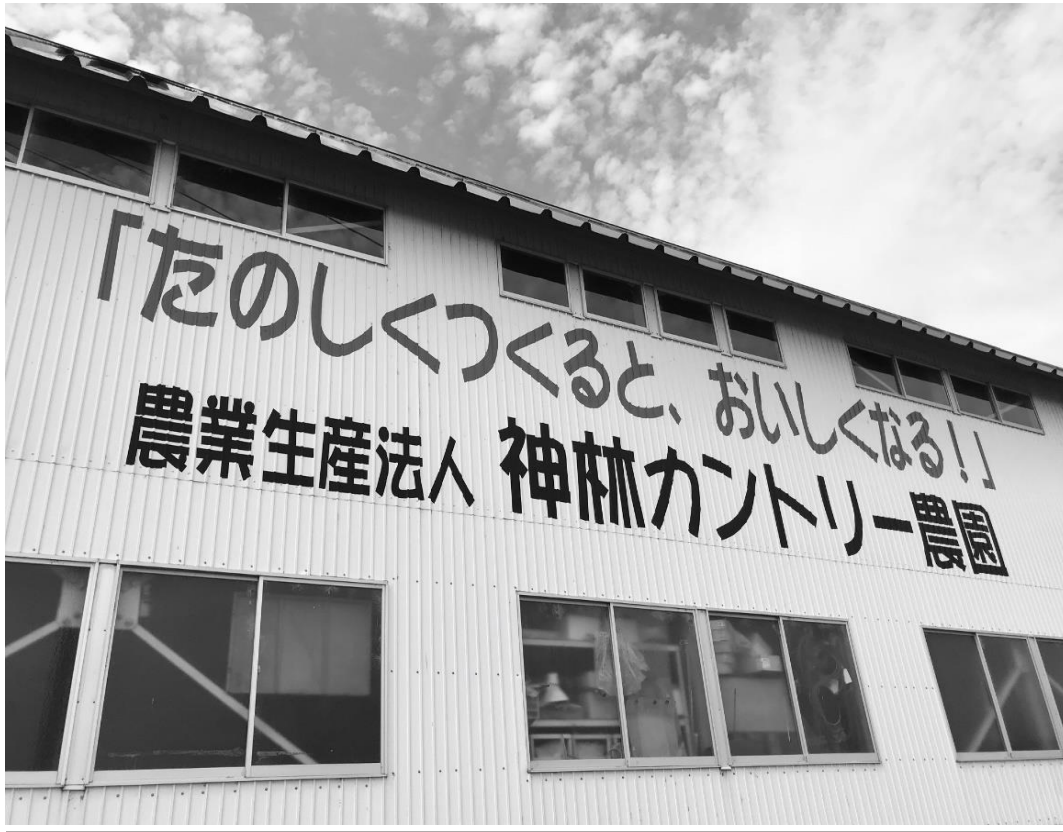 「たのしくつくると、おいしくなる!」
農業生産法人 神林カントリー農園